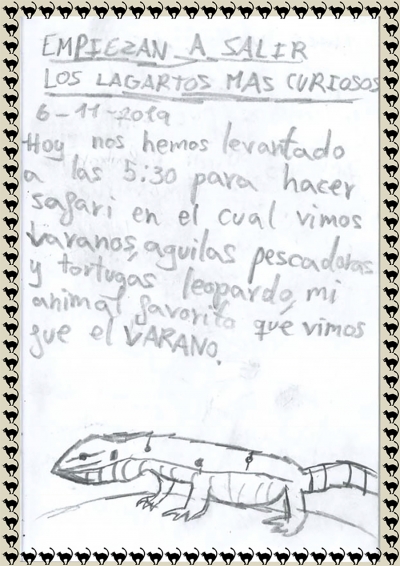 EMPIEZAN A SALIR
LOS LAGARTOS MAS CURIOSOS
6-11-2019
Hoy nos hemos levantado
a las 5:30 para hacer
safari en el cual vimos
varanos, aguilas pescadoras
y tortugas leopardo, mi
animal favorito que vimos
fue el VARANO.